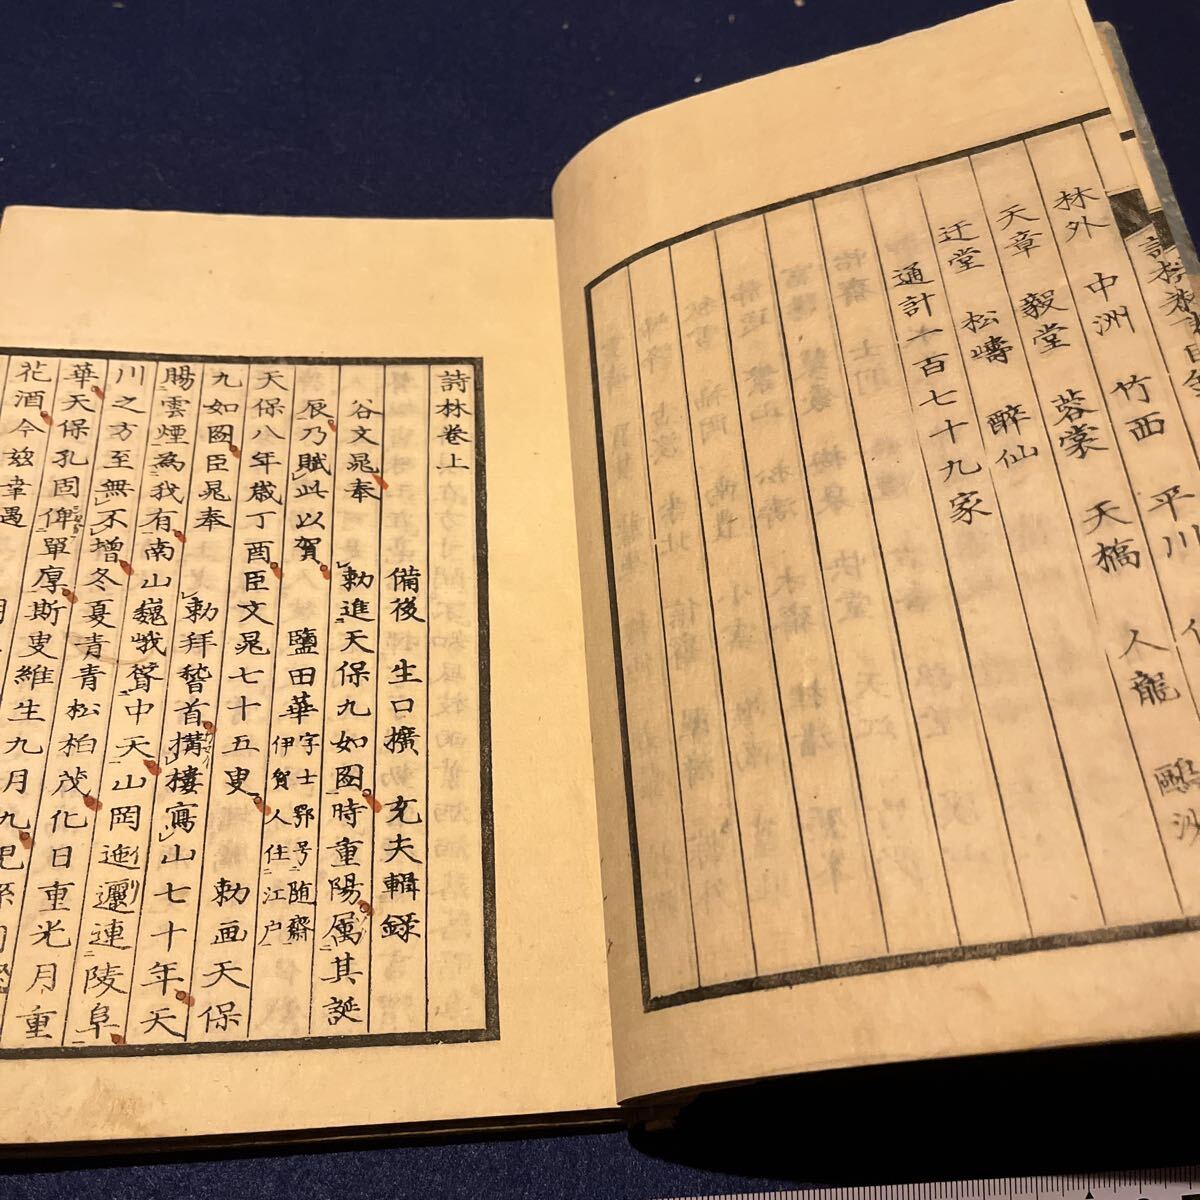 林外 中洲 竹西 平川
天章 毅堂 蓉裳 天橋 人龍 鷗沙
迂堂 松嶹 醉仙
通計一百七十九家
詩林卷上
備後 生口擴 充夫輯録
谷文晁奉 勅進天保九如図時重陽属其誕
辰乃賦此以賀 鹽田華字士鄂号随齋伊賀人住江戸
天保八年歳丁酉臣文晁七十五叟 勅画天保
九如図臣晁奉 勅拜稽首搆樓寫山七十年天
賜雲煙為我有南山巍峩聳中天山罔迤邐連陵阜
川之方至無不增冬夏青青松柏茂化日重光月重
華天保孔固俾單厚斯叟維生九月九
花酒今茲幸遇